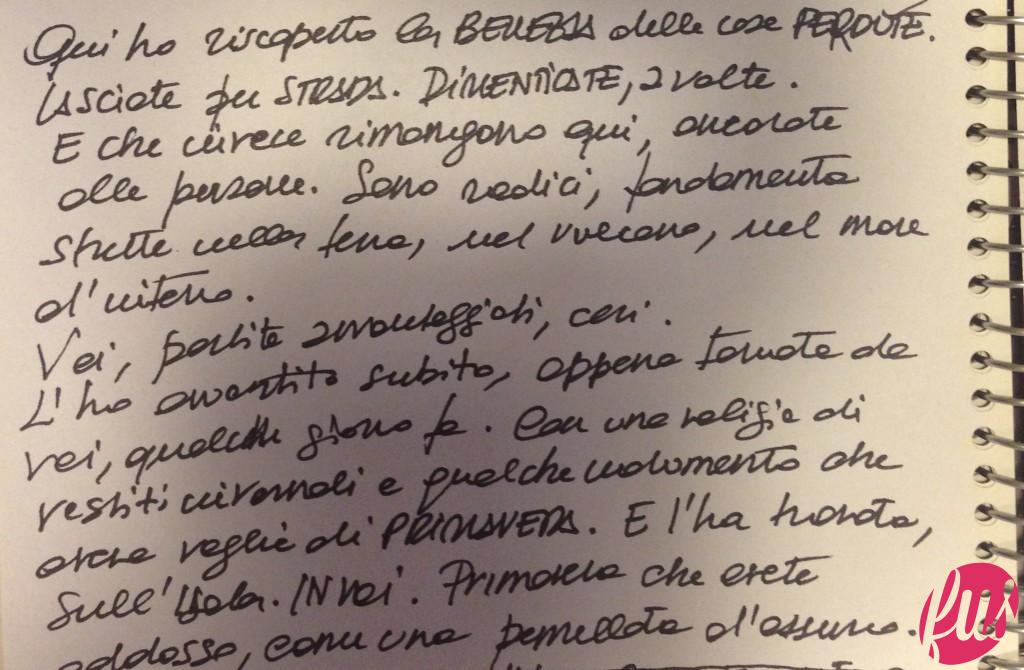 Qui ho riscoperto la BELLEZZA delle cose PERDUTE.
lasciate per STRADA. DIMENTICATE, a volte.
E che invece rimangono qui, ancorate
alle persone. Sono radici, fondamenta
strette nella terra, nel vulcano, nel mare
d'interno.
Voi, partite avvantaggiati, così.
L'ho avvertito subito, appena tornata da
voi, qualche giorno fa. Con una valigia di
vestiti invernali e qualche indumento che
aveva voglia di PRIMAVERA. E l'ha trovata,
sull'Isola. IN voi. Primavera che avete
addosso, come una pennellata d'azzurro.
fus